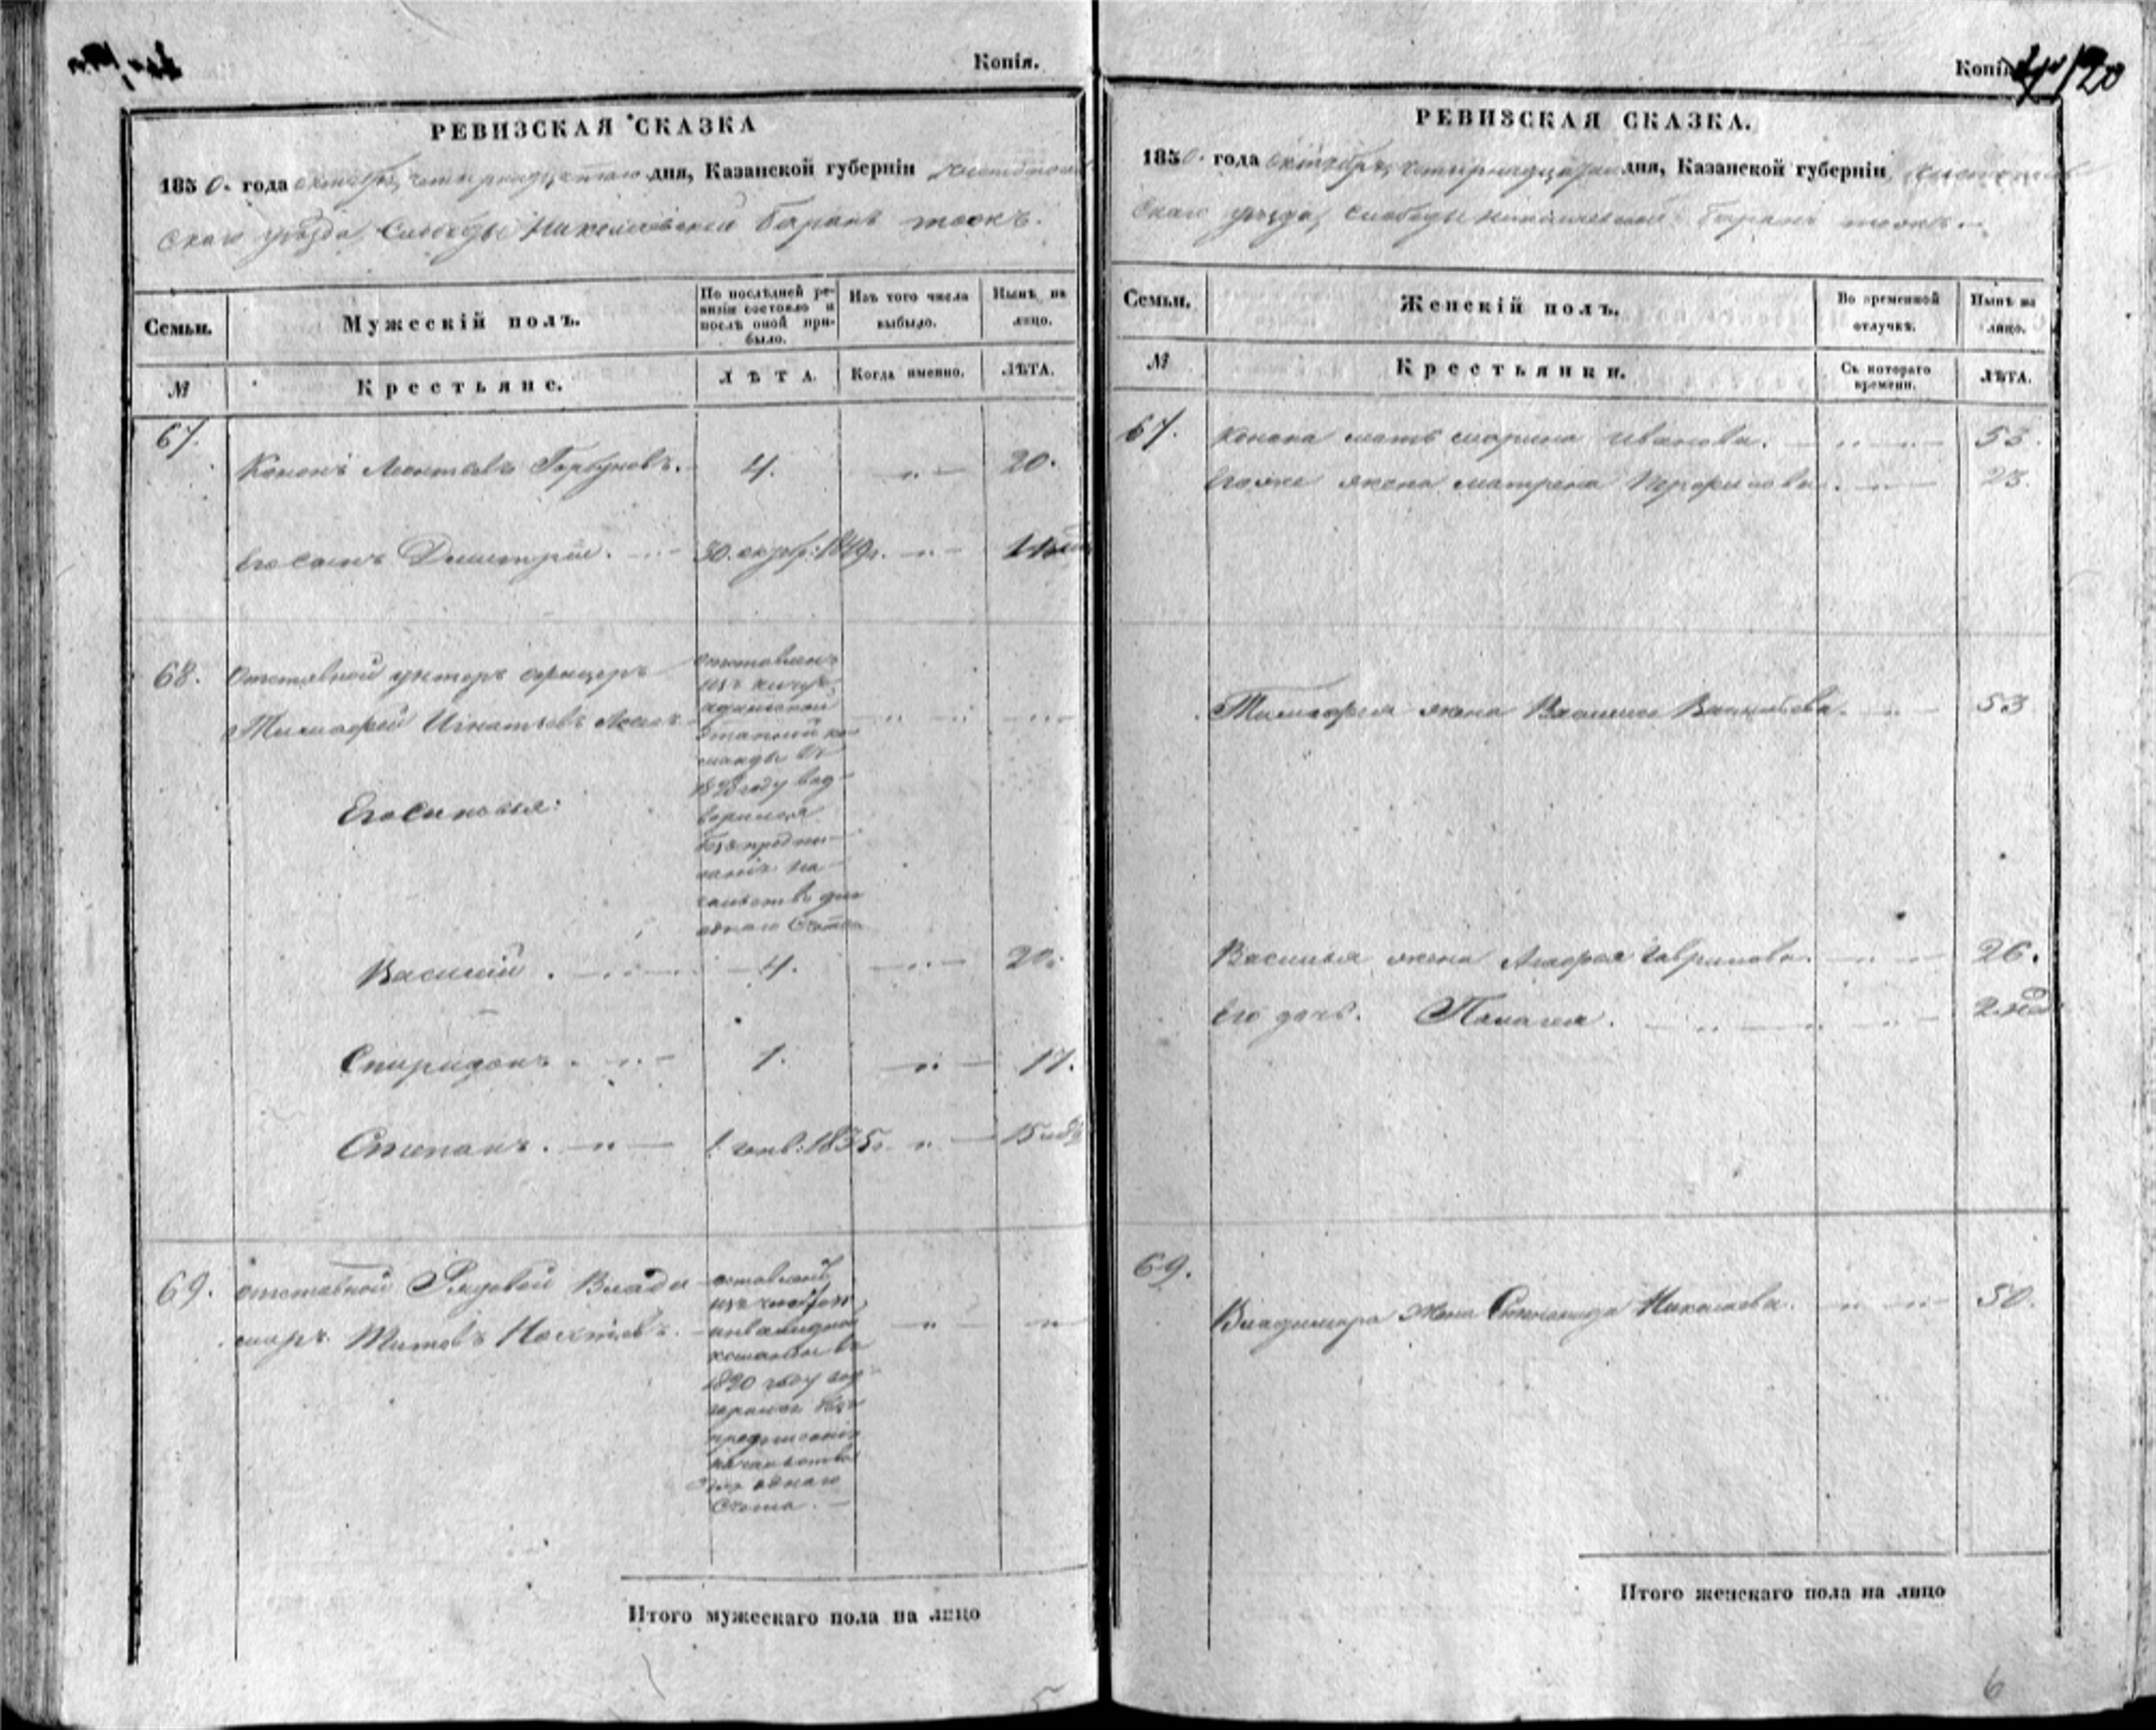 Копія.
РЕВИЗСКАЯ СКАЗКА
1850. года октября четырнадцатаго дня, Казанской губерніи Чистополь
скаго уѣзда, Слободы Николаевской Баранъ тожъ.
Семьи.
Мужескій полъ.
По послѣдней ре-
визіи состояло и
послѣ оной при-
было.
Изъ того числа
выбыло.
Нынѣ на
лицо.
№
Крестьяне.
ЛѢТА.
Когда именно.
ЛѢТА.
67.
Кононъ Леонтьевъ Горбуновъ.
4.
20.
Его сынъ Димитрій.
30. октяб: 1849г.
68.
отставной унтеръ офицеръ
Тимофей Игнатьевъ
отставленъ
изъ
этапной ко
манды въ
году вод
ворился
безъ предпи
санія на
чальства для
однаго счета
Его сыновья:
Василій
4.
20.
Спиридонъ
1.
17.
Степанъ.
1. генв: 1835г.
15
69.
отставной Рядовой Влади
миръ Титовъ
отставленъ
изъ
инвалидной
команды въ
году вод
ворился безъ
предписанія
начальства
для однаго
счета.
Итого мужескаго пола на лицо
5
Копія.
120
РЕВИЗСКАЯ СКАЗКА.
1850. года октября четырнадцатаго дня, Казанской губерніи Чистополь
скаго уѣзда, слободы Николаевской Баранъ тожъ.
Семьи.
Женскій полъ.
Во временной
отлучкѣ.
Нынѣ на
лицо.
№
Крестьянки.
Съ котораго
времени.
ЛѢТА.
67.
Конона мать Марина Иванова.
53.
Его же жена Матрена
23.
Тимофея жена
53
Василья жена Гаврилова.
26.
Его дочь. Палагея.
69.
Владимира жена Степанида Николаева.
50.
Итого женскаго пола на лицо
6